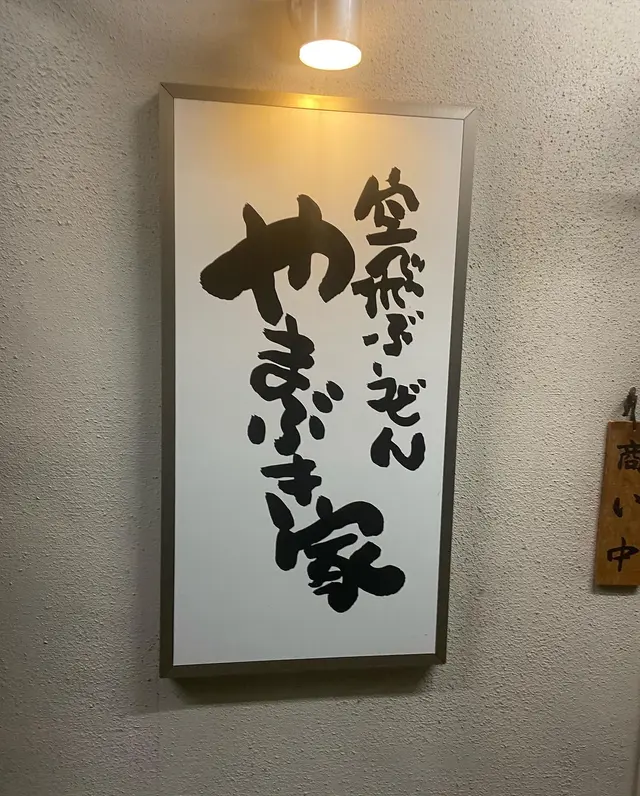 空飛ぶうどん
やまぶき家
商い中